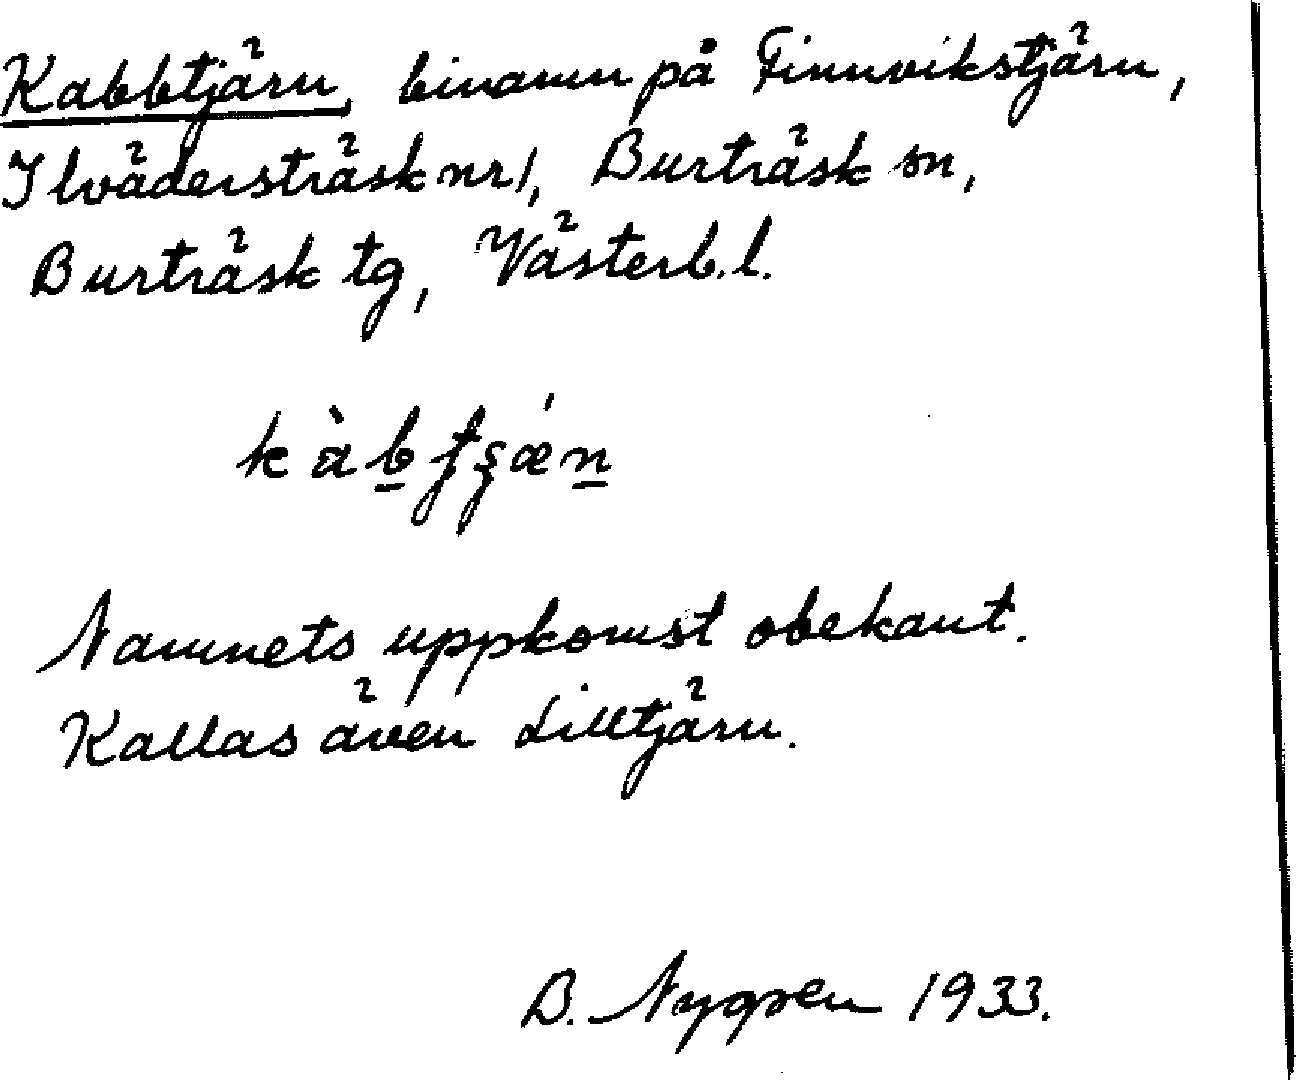 Kabbtjärn, binamn på Finnvikstjärn,
Ilvädersträsk nr 1, Burträsk sn,
Burträsk tg, Västerb. l.
Namnets uppkomst obekant.
Kallas även Lilltjärn.
B. Nygren 1933.